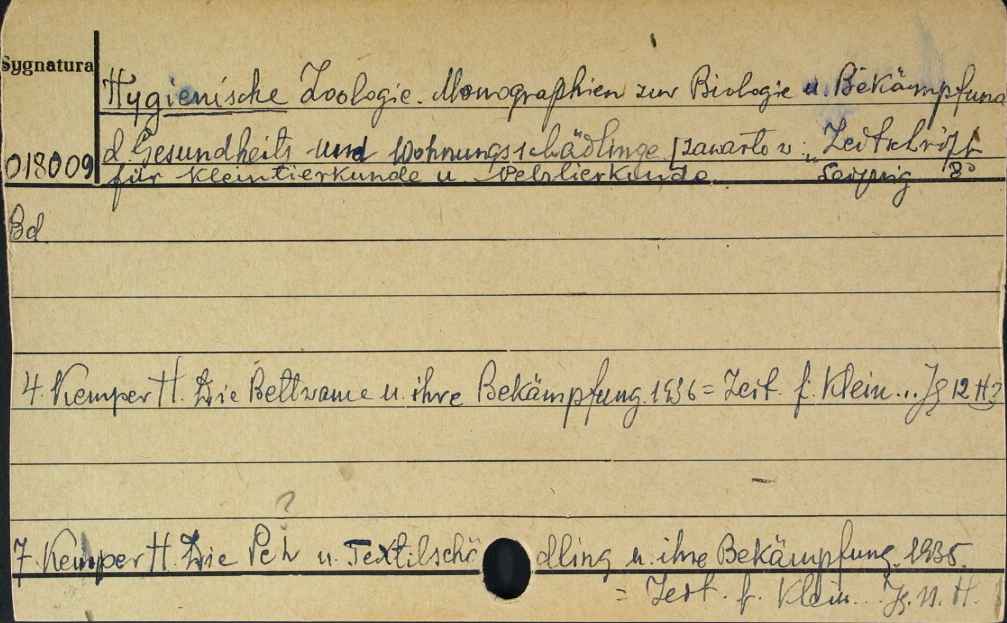 Sygnatura
Hygienische Zoologie. Monographien zur Biologie u. Bekämpfung
018009
d. Gesundheits und Wohnungsschädlinge [zawarto w: "Zeitschrift
für Kleintierkunde u Pelztierkunde. Leipzig 8°
Bd.
4. Kemper H. Die Bettwanze u. ihre Bekämpfung. 1936 = Zeit. f. Klein... Jg 12 H3
?
7. Kemper H. Die Pelz u. Textilschädling u. ihre Bekämpfung. 1935.
= Zeit. f. Klein... Jg. 11. H.